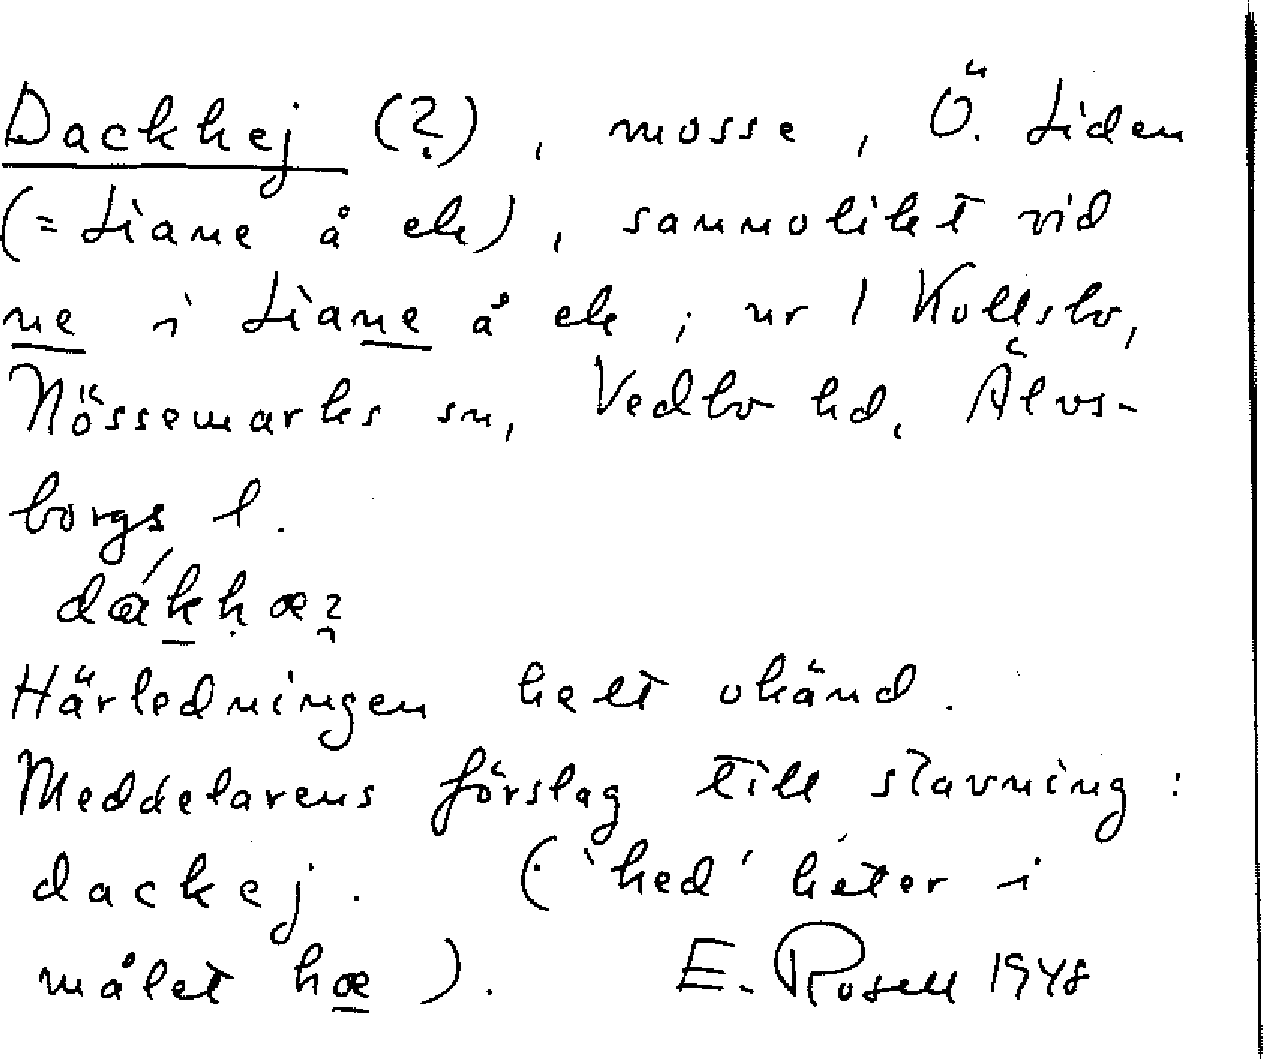 Dackhej (?), mosse, Ö. Liden
(= Liane å ek), sannolikt vid
ne i Liane å ek; nr 1 Kollsbo,
Nössemarks sn, Vedbo hd, Älvs-
borgs l.
Härledningen helt okänd.
Meddelarens förslag till stavning:
dackej. ('hed' heter i
målet hæ). E. Rosell 1948